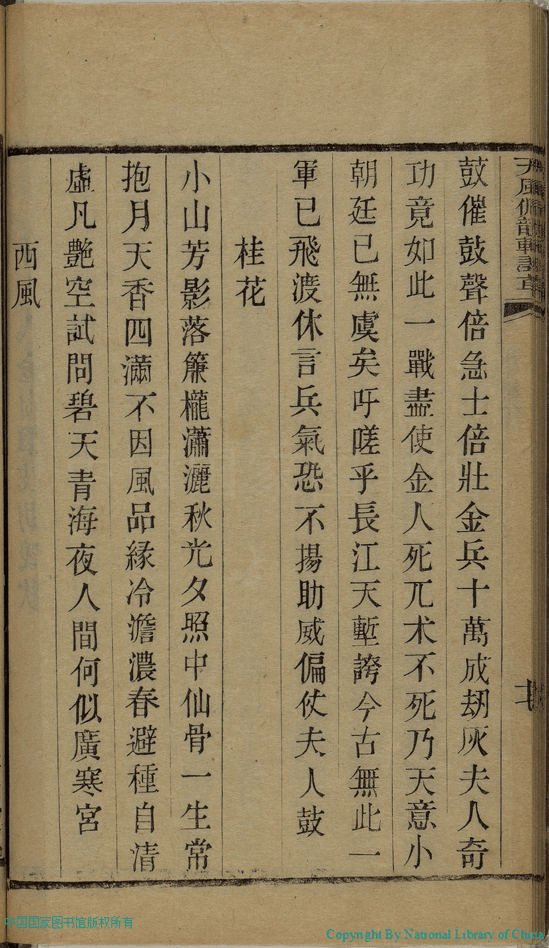 鼓催鼓聲倍急士倍壯金兵十萬成刼灰夫人奇
功竟如此一戰盡使金人死兀术不死乃天意小
朝廷已無虞矣吁嗟乎長江天塹誇今古無此一
軍已飛渡休言兵氣恐不揚助威偏仗夫人鼓
桂花
小山芳影落簾櫳瀟灑秋光夕照中仙骨一生常
抱月天香四滿不因風品緣冷澹濃春避種自清
虛凡艷空試問碧天青海夜人間何似廣寒宮
西風
中国国家图书馆版权所有
Copyright By National Library of China